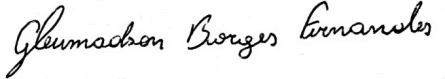 Gleumadson Borges Fernandes